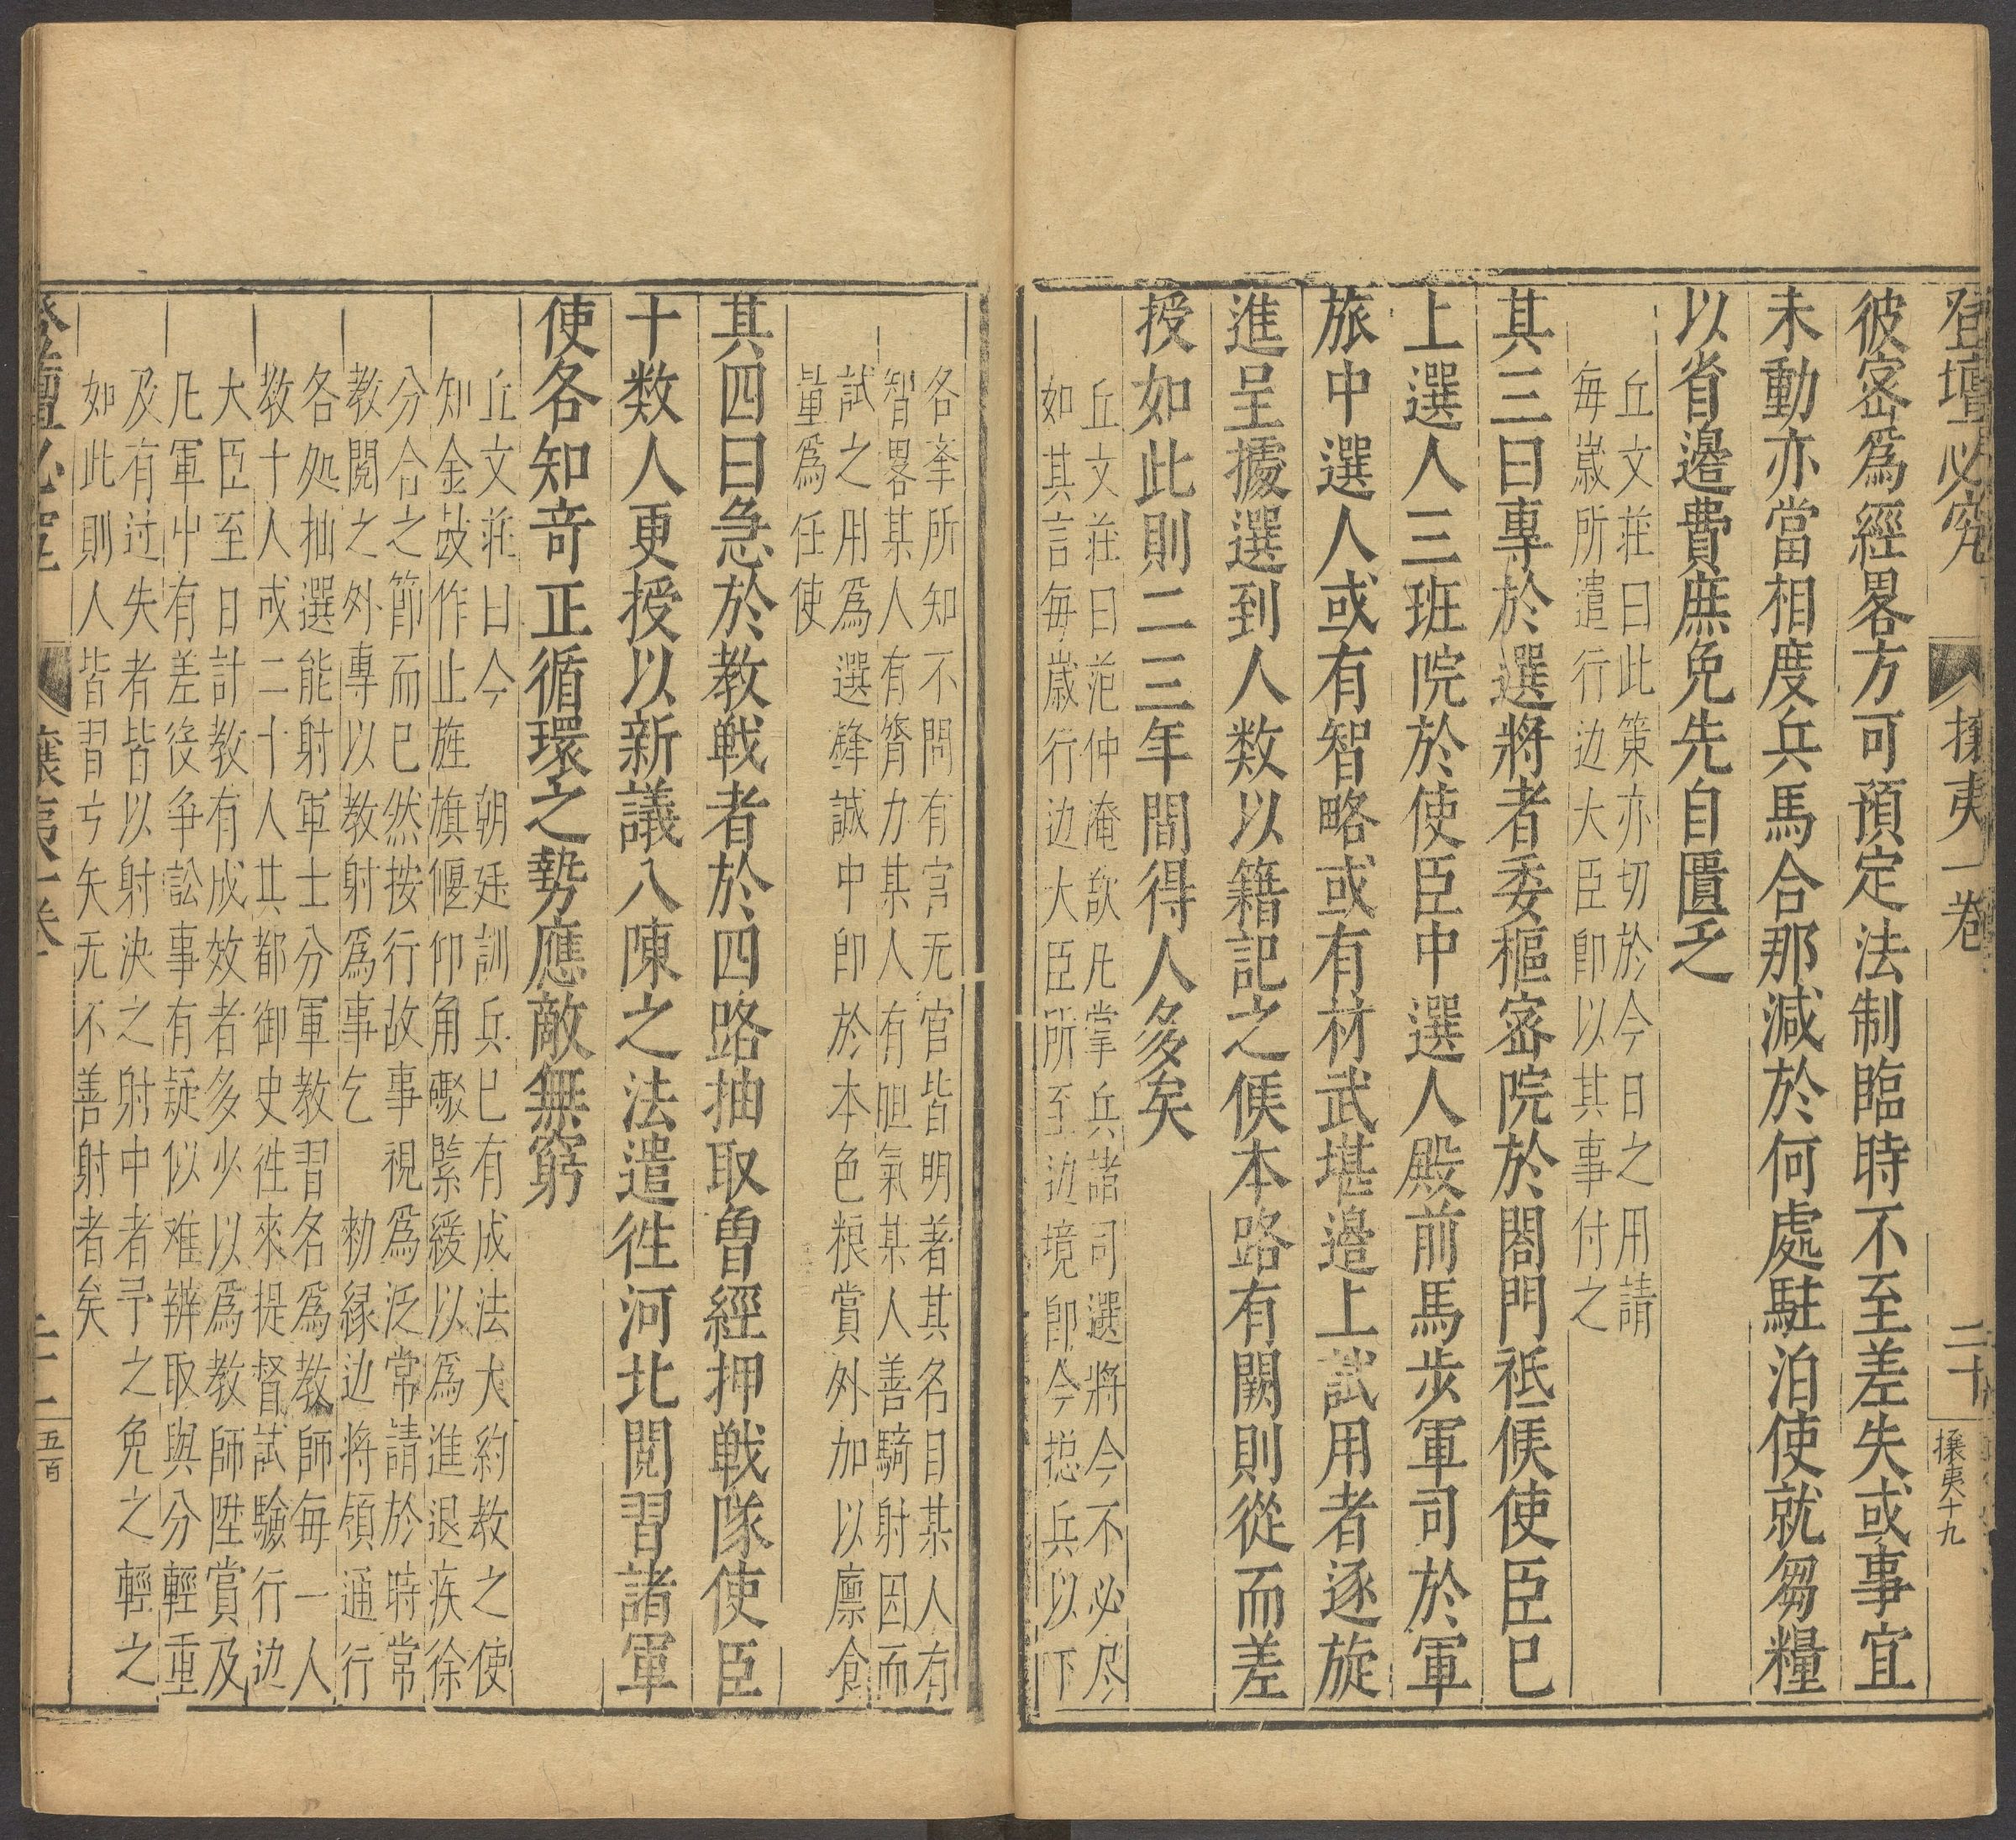 登壇必究
攘夷一卷
二十
攘夷十九
彼密爲經畧方可預定法制臨時不至差失或事宜
未動亦當相度兵馬合那減於何處駐泊使就芻糧
以省邉費庶免先自匱乏
丘文莊曰此策亦切於今日之用請
每歲所遣行边大臣卽以其事付之
其三曰專於選將者委樞密院於閤門祗候使臣已
上選人三班院於使臣中選人殿前馬步軍司於軍
旅中選人或有智略或有材武堪邉上試用者逐旋
進呈據選到人数以籍記之候本路有闕則從而差
授如此則二三年間得人多矣
丘文莊曰范仲淹欲凡掌兵諸司選將今不必尽
如其言每歲行边大臣所至边境卽令摠兵以下
各峯所知不問有官无官皆明著其名目某人有
智畧某人有膂力某人有胆氣某人善騎射因而
試之用爲選鋒誠中卽於本色粮賞外加以廪食
量爲任使
其四曰急於教戦者於四路抽取曾經押戦隊使臣
十数人更授以新議八陳之法遣徃河北閲習諸軍
使各知竒正循環之勢應敵無窮
丘文莊曰今 朝廷訓兵已有成法大約教之使
知金鼓作止旌旗偃仰角礮緊緩以爲進退疾徐
分合之節而已然按行故事視爲泛常請於時常
教閲之外專以教射爲事乞 勅縁边将領通行
各処抽選能射軍士分軍教習名爲教師每一人
教十人或二十人其都御史徃來提督試驗行边
大臣至日計教有成效者多少以爲教師陞賞及
凡軍中有差徭争訟事有疑似难辨取與分輕重
及有过失者皆以射决之射中者予之免之輕之
如此則人皆習弓矢无不善射者矣
登壇必究
攘夷一卷
二十一
五百